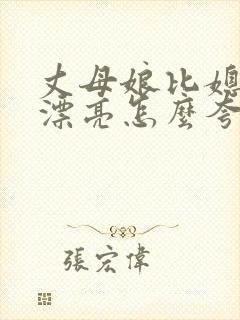 丈母娘比媳
漂亮怎麼夸
張宏偉